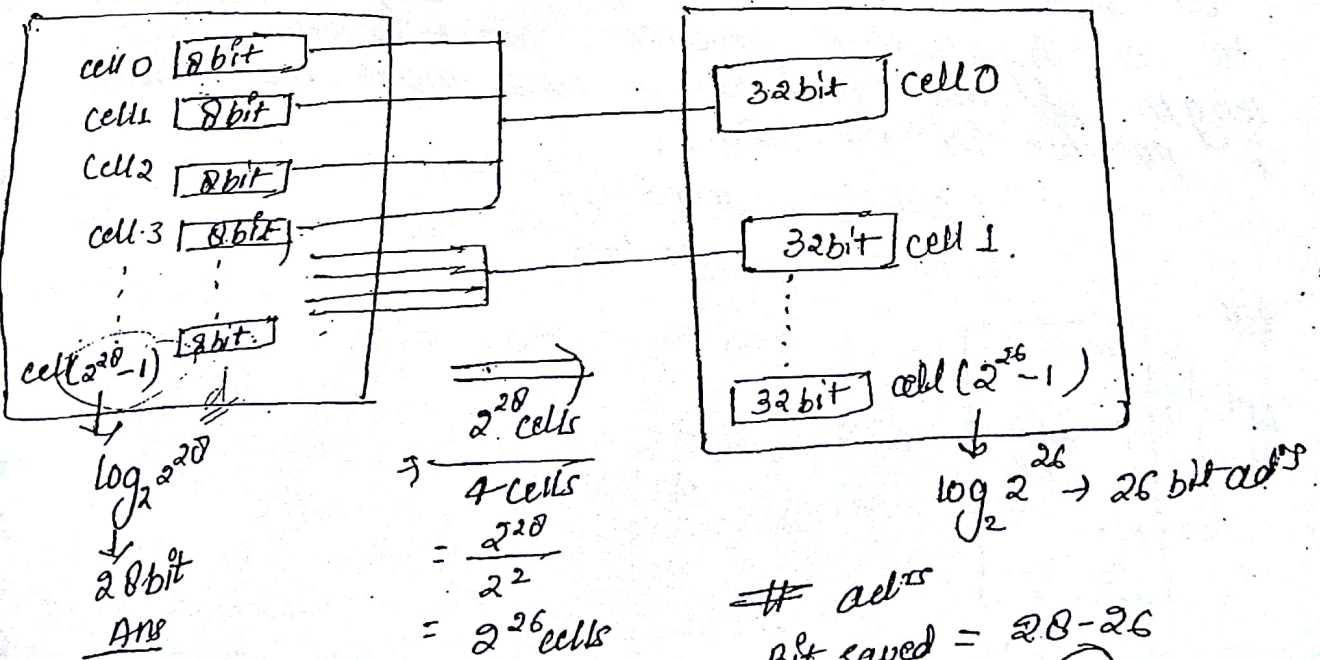 cell 0 8bit
cell 1 8bit
cell 2 8bit
cell 3 8bit
cell (2^28 - 1) 8bit
log₂ 2^28
28bit
Ans
2^28 cells
4 cells
= 2^28
2^2
= 2^26 cells
32bit cell 0
32bit cell 1.
32bit cell (2^26 - 1)
log₂ 2^26 → 26 bit adrs
# adrs
Bit saved = 28-26